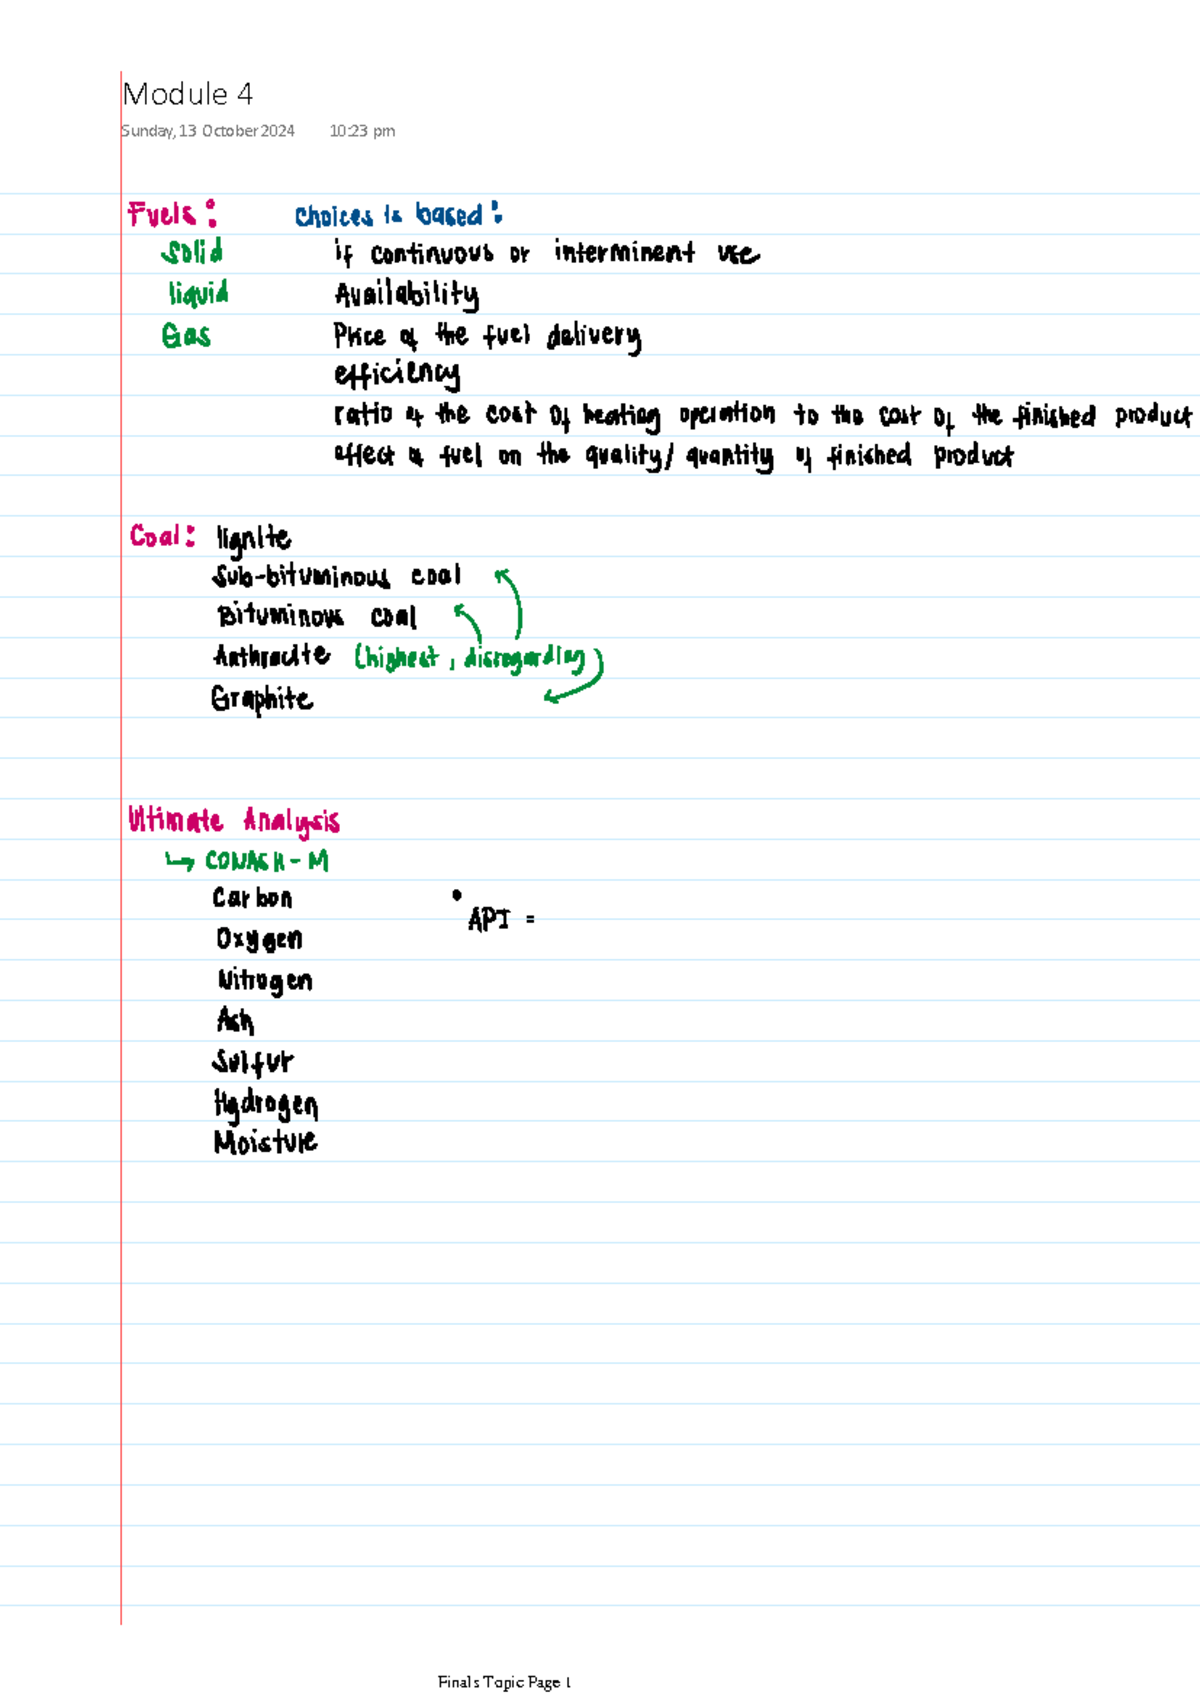 Module 4
Sunday, 13 October 2024 10:23 pm
Fuels: choices is based:
solid if continuous or interminent use
liquid Availability
Gas Price of the fuel delivery
efficiency
ratio of the cost of heating operation to the cost of the finished product
effect of fuel on the quality/ quantity of finished product
Coal: lignite
Sub-bituminous coal
Bituminous coal
Anthracite (highest, disregarding)
Graphite
Ultimate Analysis
↳ CONASH-M
Carbon
• API =
Oxygen
Nitrogen
Ash
Sulfur
Hydrogen
Moisture
Finals Topic Page 1